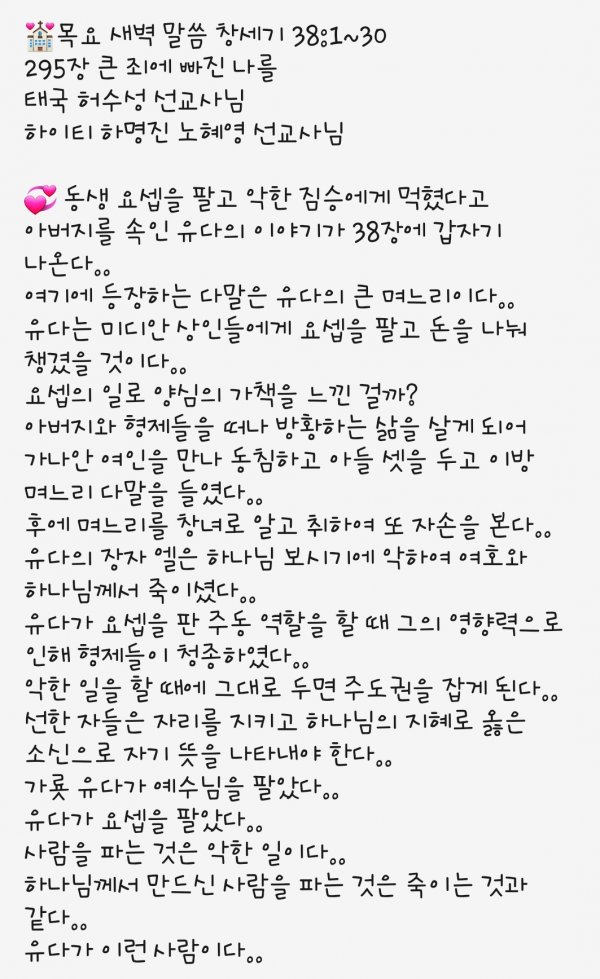 💒목요 새벽 말씀 창세기 38:1~30
295장 큰 죄에 빠진 나를
태국 허수성 선교사님
하이티 하명진 노혜영 선교사님
💞 동생 요셉을 팔고 악한 짐승에게 먹혔다고
아버지를 속인 유다의 이야기가 38장에 갑자기
나온다。。
여기에 등장하는 다말은 유다의 큰 며느리이다。。
유다는 미디안 상인들에게 요셉을 팔고 돈을 나눠
챙겼을 것이다。。
요셉의 일로 양심의 가책을 느낀 걸까?
아버지와 형제들을 떠나 방황하는 삶을 살게 되어
가나안 여인을 만나 동침하고 아들 셋을 두고 이방
며느리 다말을 들였다。。
후에 며느리를 창녀로 알고 취하여 또 자손을 본다。。
유다의 장자 엘은 하나님 보시기에 악하여 여호와
하나님께서 죽이셨다。。
유다가 요셉을 판 주동 역할을 할 때 그의 영향력으로
인해 형제들이 청종하였다。。
악한 일을 할 때에 그대로 두면 주도권을 잡게 된다。。
선한 자들은 자리를 지키고 하나님의 지혜로 옳은
소신으로 자기 뜻을 나타내야 한다。。
가룟 유다가 예수님을 팔았다。。
유다가 요셉을 팔았다。。
사람을 파는 것은 악한 일이다。。
하나님께서 만드신 사람을 파는 것은 죽이는 것과
같다。。
유다가 이런 사람이다。。